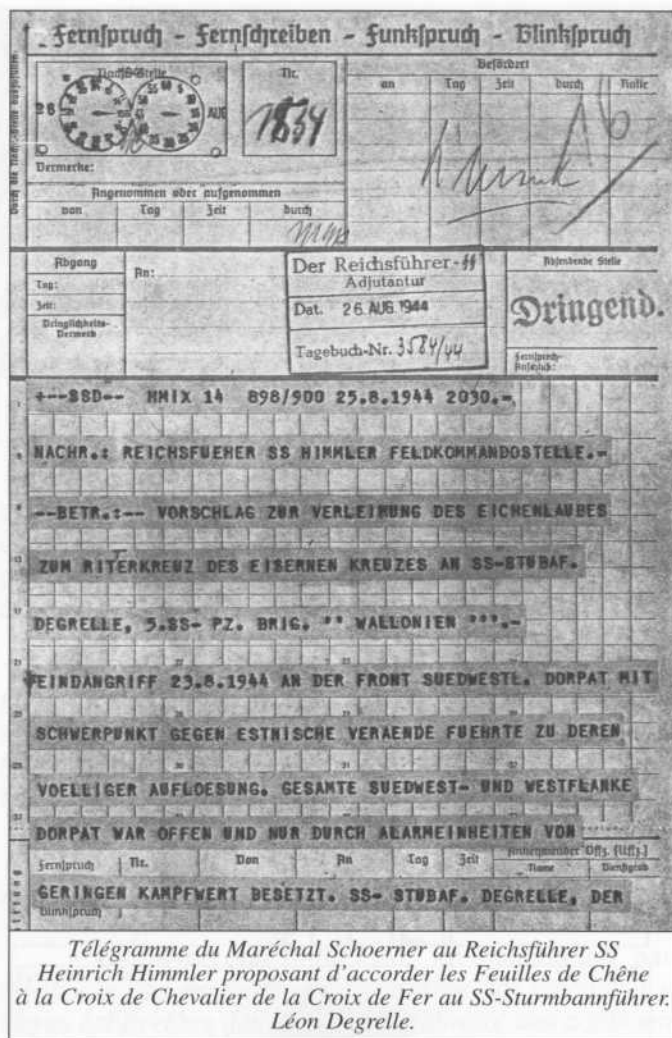 Fernspruch - Fernschreiben - Funkspruch - Blinkspruch
Nachr.-Stelle
Nr.
Befördert
an Tag Zeit durch Rolle
26 AUG
1834
Vermerke:
Angenommen oder aufgenommen
von Tag Zeit durch
Abgang
Tag:
Zeit:
Dringlichkeits-
Vermerk
An:
Der Reichsführer-SS
Adjutantur
Dat. 26. AUG. 1944
Tagebuch-Nr. 3584/44
Absendende Stelle
Dringend.
Fernsprech-
Anschluß:
+--SSD-- HMIX 14 898/900 25.8.1944 2030.-
NACHR.: REICHSFUEHER SS HIMMLER FELDKOMMANDOSTELLE.-
--BETR.:-- VORSCHLAG ZUR VERLEIHUNG DES EICHENLAUBES
ZUM RITERKREUZ DES EISERNEN KREUZES AN SS-STUBAF.
DEGRELLE, 5.SS- PZ. BRIG. '' WALLONIEN '''.-
FEINDANGRIFF 23.8.1944 AN DER FRONT SUEDWESTL. DORPAT MIT
SCHWERPUNKT GEGEN ESTNISCHE VERAENDE FUEHRTE ZU DEREN
VOELLIGER AUFLOESUNG. GESAMTE SUEDWEST- UND WESTFLANKE
DORPAT WAR OFFEN UND NUR DURCH ALARMEINHEITEN VON
Fernspruch Nr. Von An Tag Zeit Annehmender Offz. (Uffz.)
Name Dienstgrad
GERINGEN KAMPFWERT BESETZT. SS- STUBAF. DEGRELLE, DER
Blinkspruch
Télégramme du Maréchal Schoerner au Reichsführer SS
Heinrich Himmler proposant d'accorder les Feuilles de Chêne
à la Croix de Chevalier de la Croix de Fer au SS-Sturmbannführer.
Léon Degrelle.